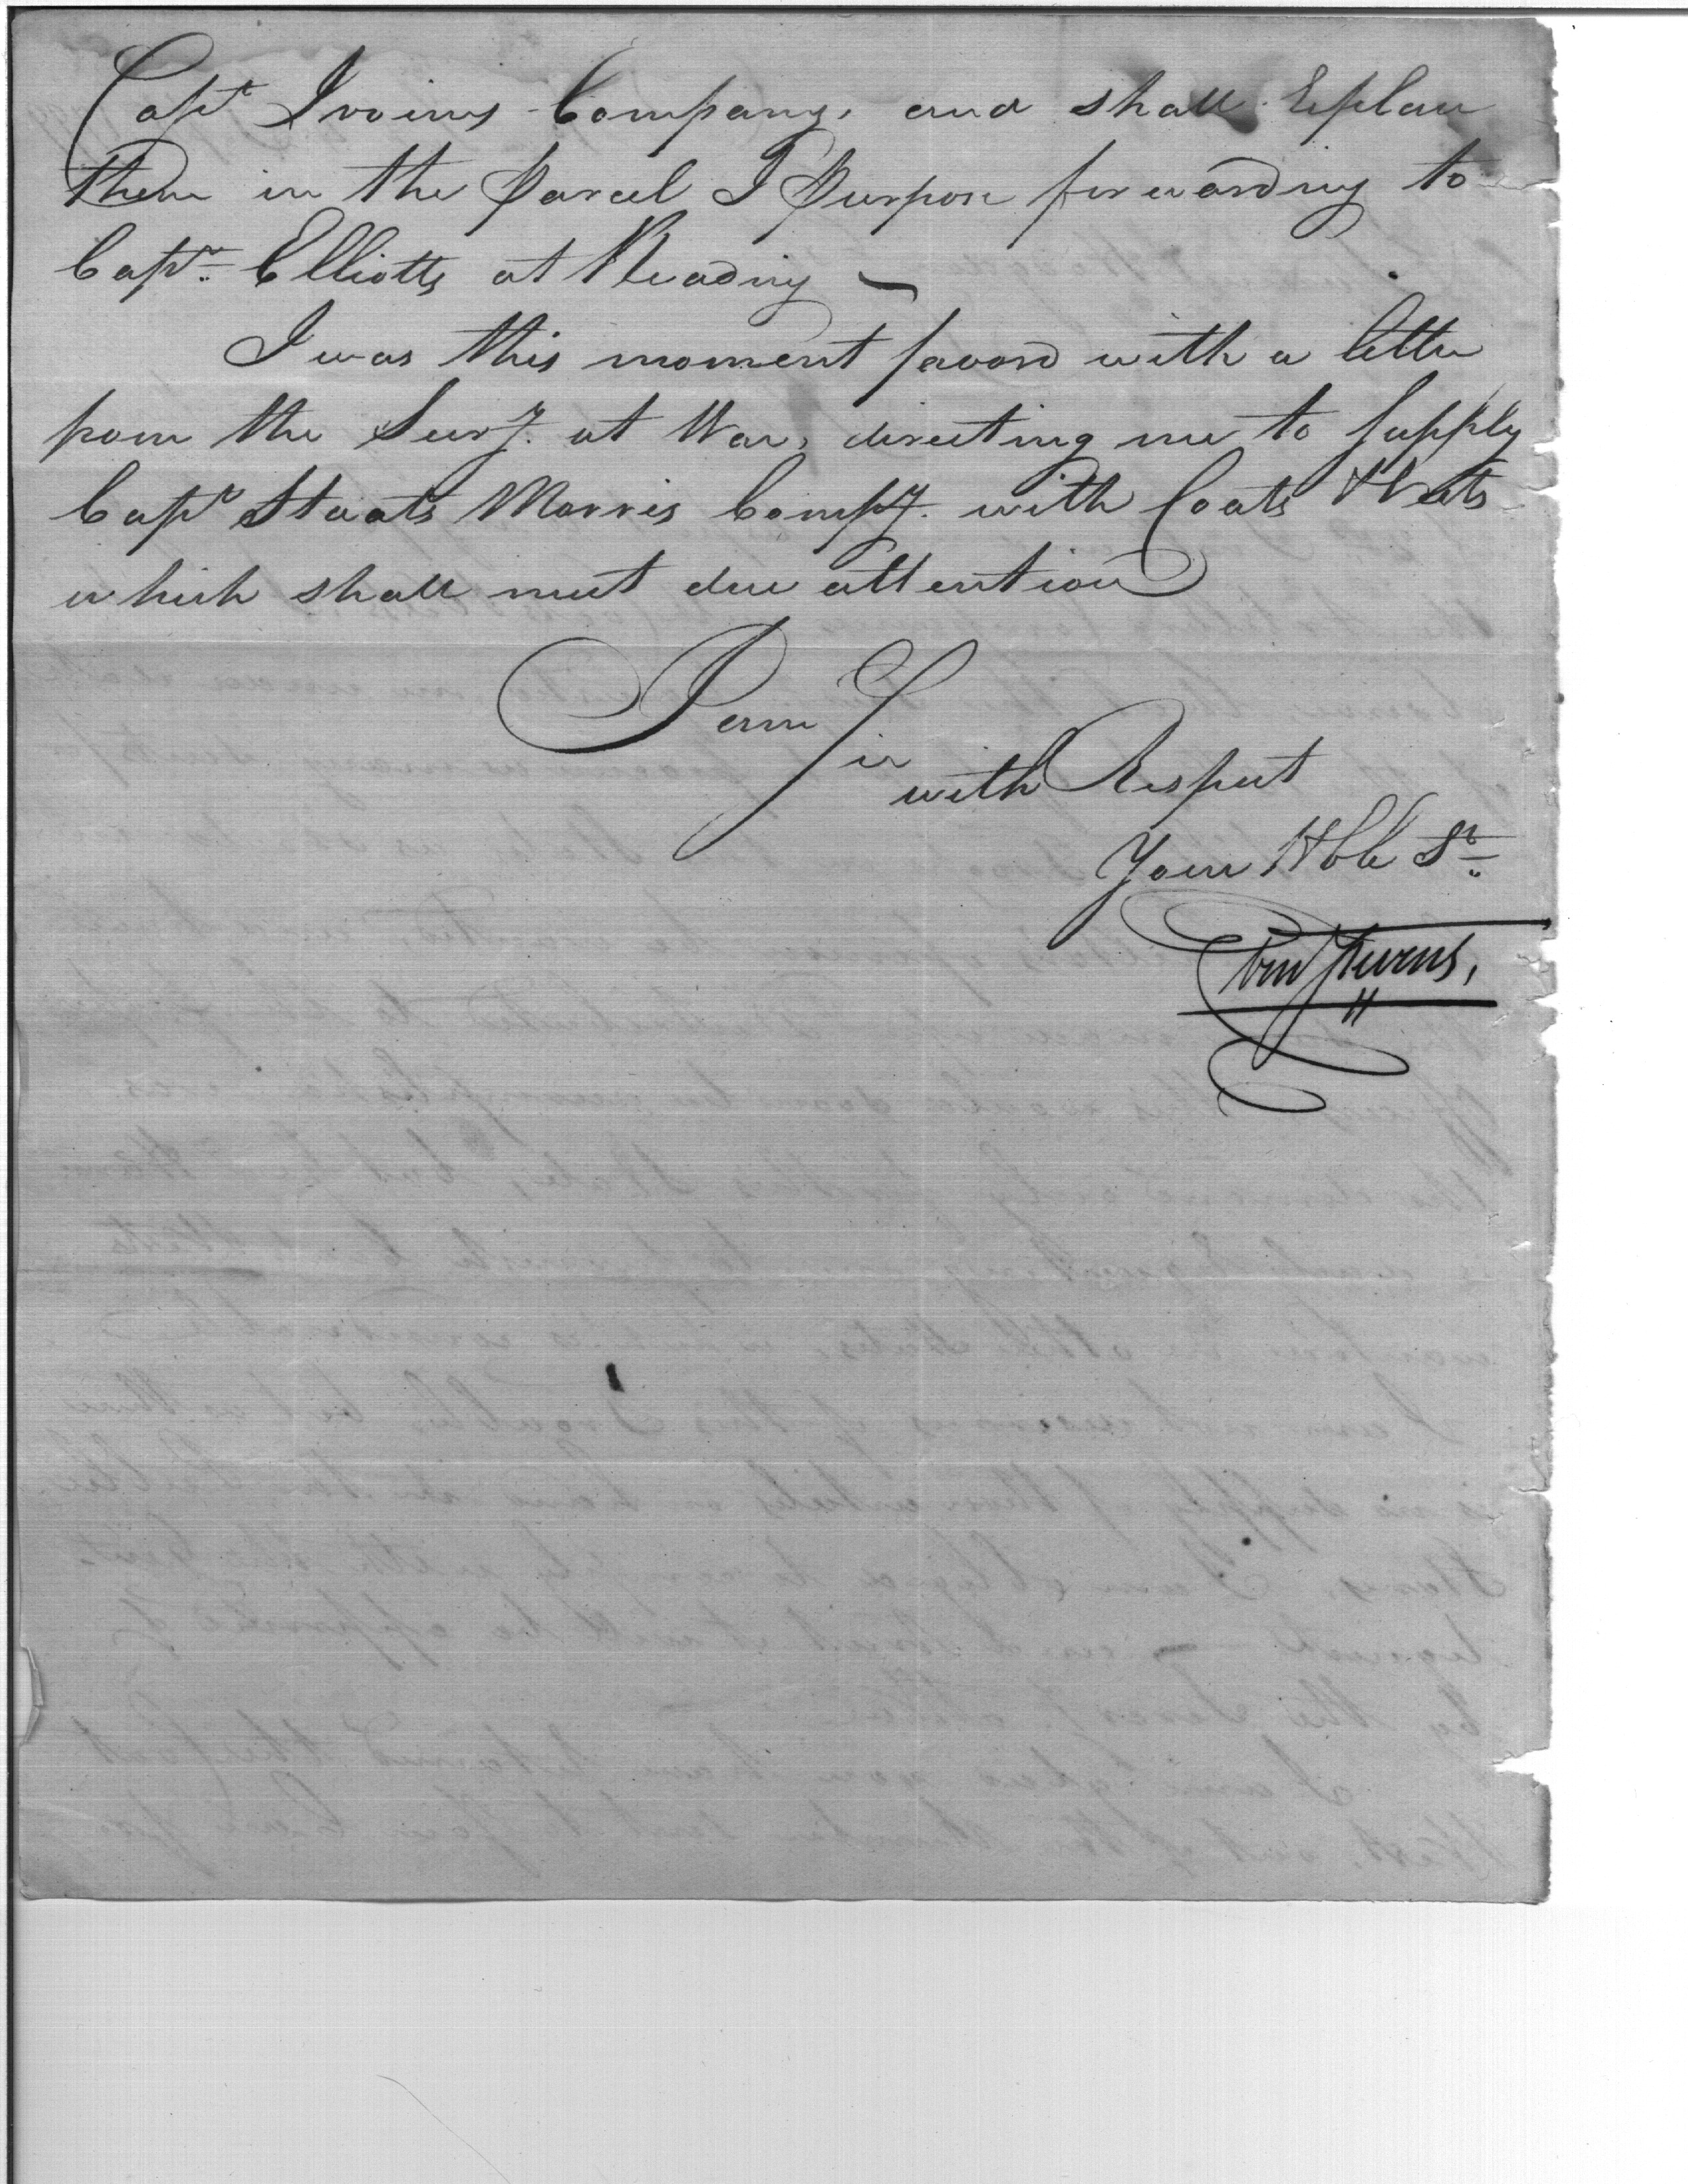 Capt Irvines Company, and shall Replace
them in the Parcel I Purpose forwarding to
Capt Elliotts at Reading —
I was this moment favord with a letter
from the Secry. at War, directing me to Supply
Capt Staats Morris Compy. with Coats & Vests
which shall meet due attention
I am Sir
with Respect
Your Hble St
Eben Stevens,